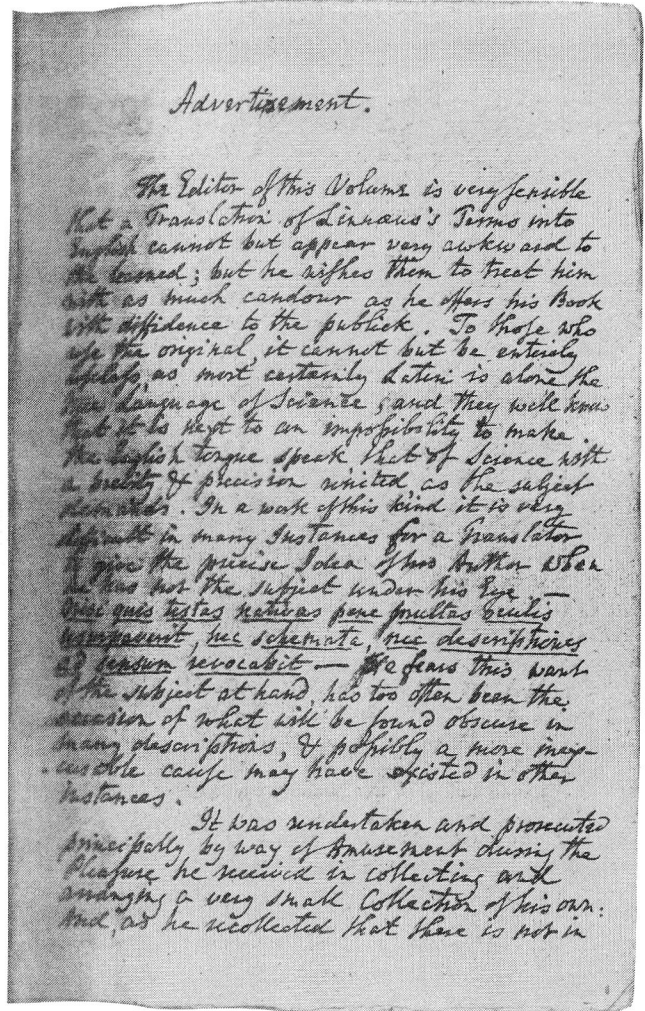 Advertisement.
The Editor of this Volume is very sensible
that a Translation of Linnæus's Terms into
English cannot but appear very awkward to
the learned; but he wishes them to treat him
with as much candour as he offers his Book
with diffidence to the publick. To those who
use the original, it cannot but be entirely
useless, as most certainly Latin is alone the
true Language of Science; and they will know
that it is next to an impossibility to make
the English tongue speak that of Science with
a brevity & precision united as the subject
demands. In a work of this kind it is very
difficult in many Instances for a Translator
to give the precise Idea of his Author when
he has not the subject under his Eye —
Nisi quis testas nativas pene oculis
usurpaverit, nec schemata, nec descriptiones
ad sensum revocabit — He fears this want
of the subject at hand, has too often been the
occasion of what will be found obscure in
many descriptions, & possibly a more inex-
cusable cause may have existed in other
instances.
It was undertaken and prosecuted
principally by way of Amusement during the
Pleasure he received in collecting and
arranging a very small Collection of his own:
And, as he recollected that there is not in